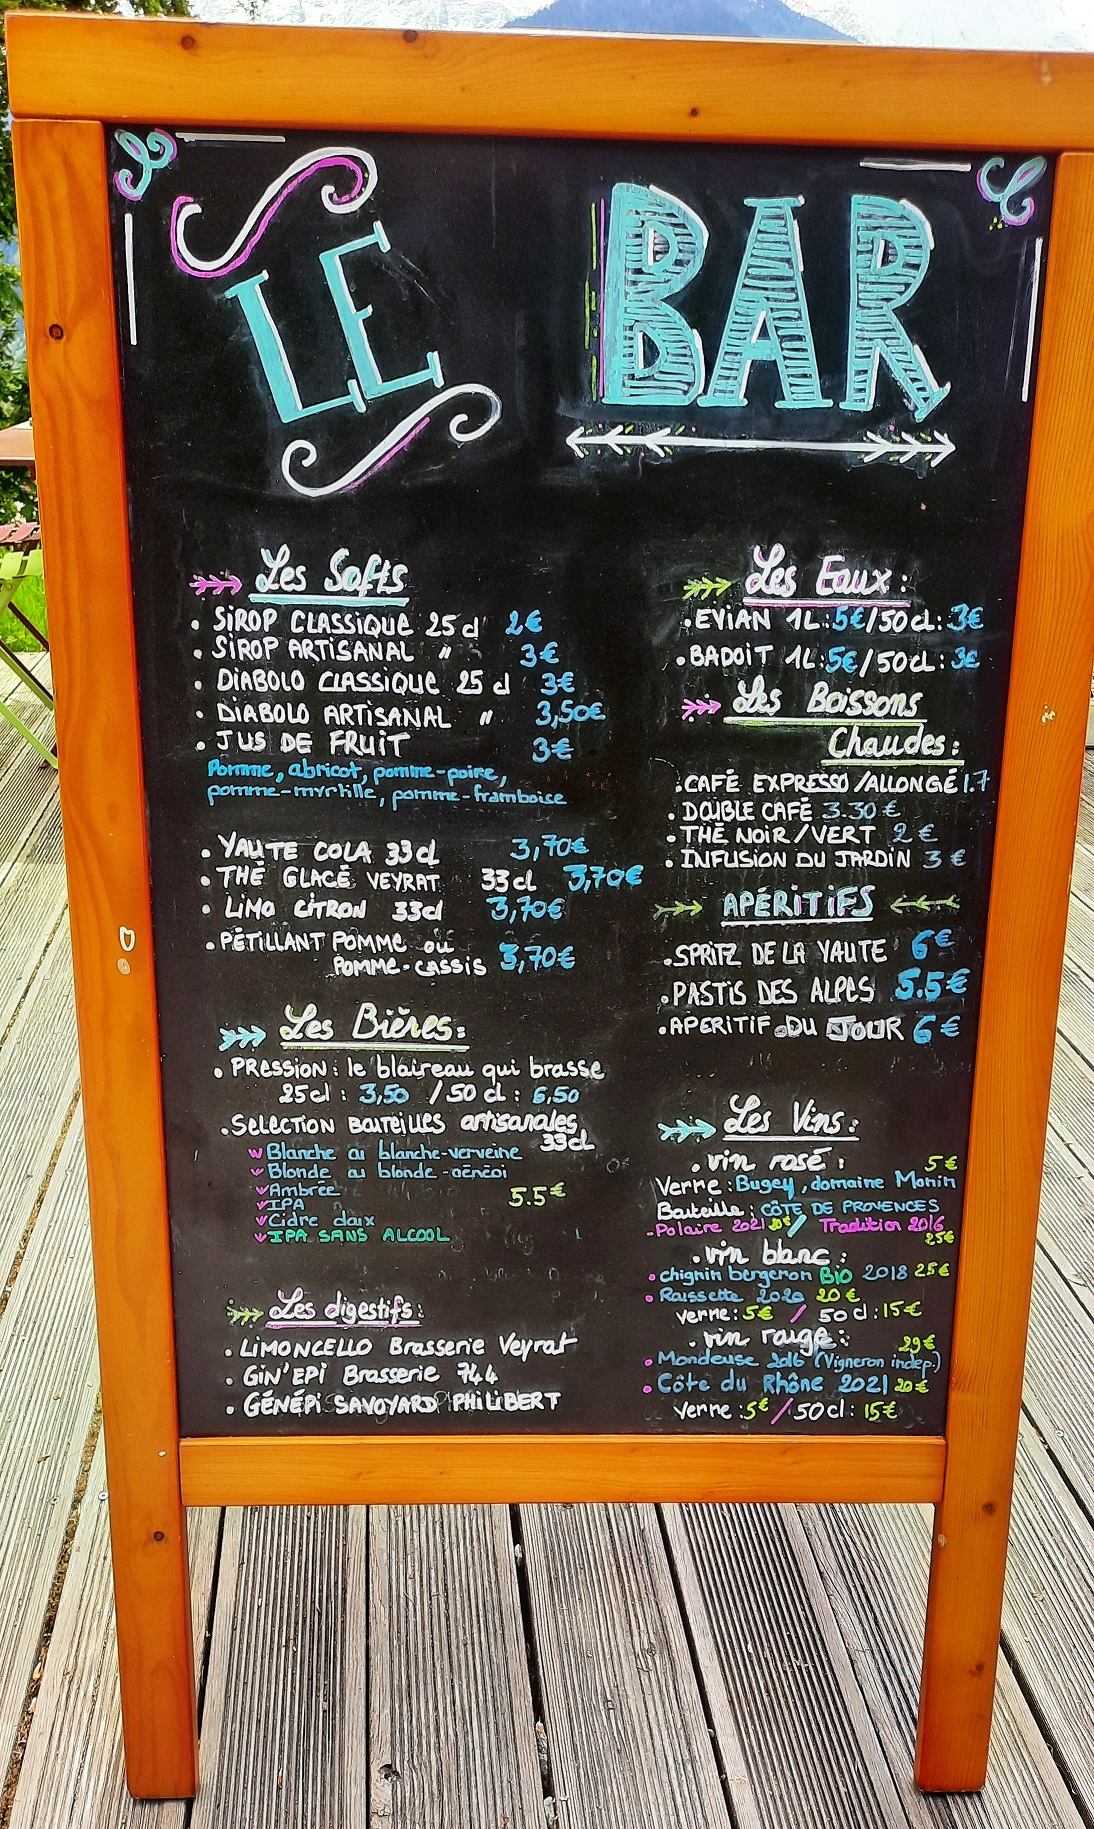 LE BAR
Les Softs
. SIROP CLASSIQUE 25 cl 2€
. SIROP ARTISANAL " 3€
. DIABOLO CLASSIQUE 25 cl 3€
. DIABOLO ARTISANAL " 3,50€
. JUS DE FRUIT 3€
Pomme, abricot, pomme-poire,
pomme-myrtille, pomme-framboise
. YAUTE COLA 33cl 3,70€
. THÉ GLACÉ VEYRAT 33cl 3,70€
. LIMO CITRON 33cl 3,70€
. PÉTILLANT POMME ou
POMME-CASSIS 3,70€
Les Bières:
. PRESSION: le blaireau qui brasse
25cl : 3,50 / 50 cl : 6,50
. SELECTION BOUTEILLES artisanales
33cl
Blanche ou blanche-verveine
Blonde ou blonde -
Ambrée
5.5€
IPA
Cidre doux
IPA SANS ALCOOL
Les digestifs:
. LIMONCELLO Brasserie Veyrat
. GIN'EPI Brasserie 744
. GÉNÉPI SAVOYARD PHILIBERT
Les Eaux :
. EVIAN 1L:5€/50cl: 3€
. BADOIT 1L:5€/50cl: 3€
Les Boissons
Chaudes :
. CAFÉ EXPRESSO /ALLONGÉ 1.7
. DOUBLE CAFÉ 3.30 €
. THÉ NOIR/VERT 2 €
. INFUSION DU JARDIN 3 €
APÉRITIFS
. SPRITZ DE LA YAUTE 6€
. PASTIS DES ALPES 5.5€
. APERITIF DU JOUR 6€
Les Vins :
. vin rosé : 5€
Verre : Bugey, domaine Monin
Bouteille : CÔTE DE PROVENCES
-Polaire 2021 / Tradition 2016
25€
. vin blanc :
. chignin bergeron BIO 2018 25€
. Raissette 2020 20€
verre: 5€ / 50 cl : 15€
. vin rouge : 29€
. Mondeuse 2016 (Vigneron indep.)
. Côte du Rhône 2021 20€
verre : 5€ / 50cl : 15€